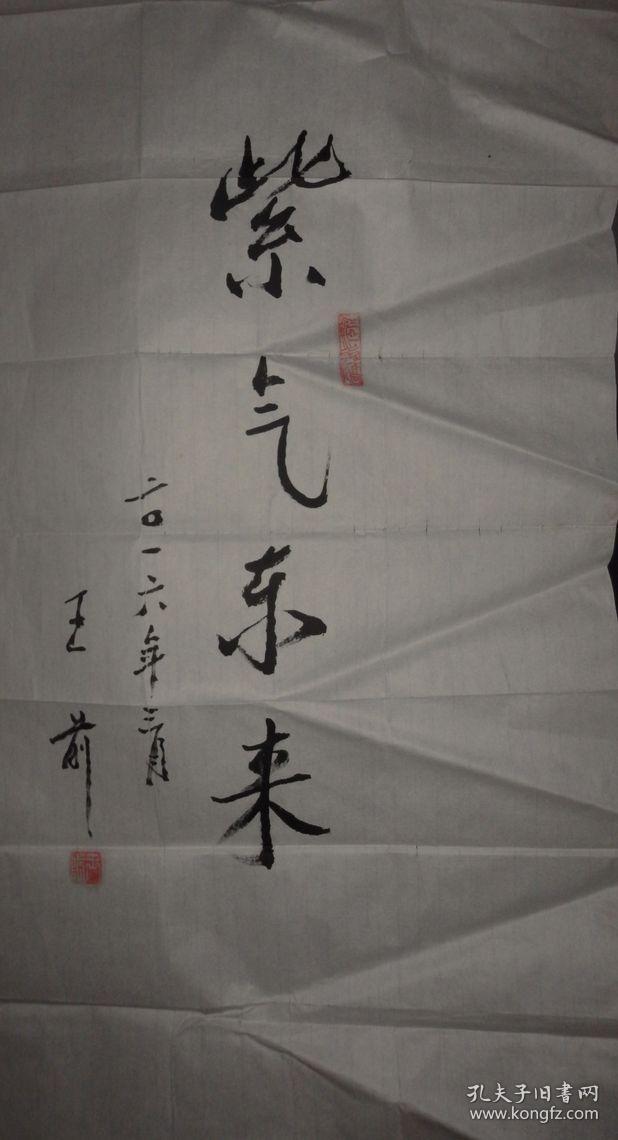 紫气东来
二〇一六年三月
王前
孔夫子旧书网
www.kongfz.com